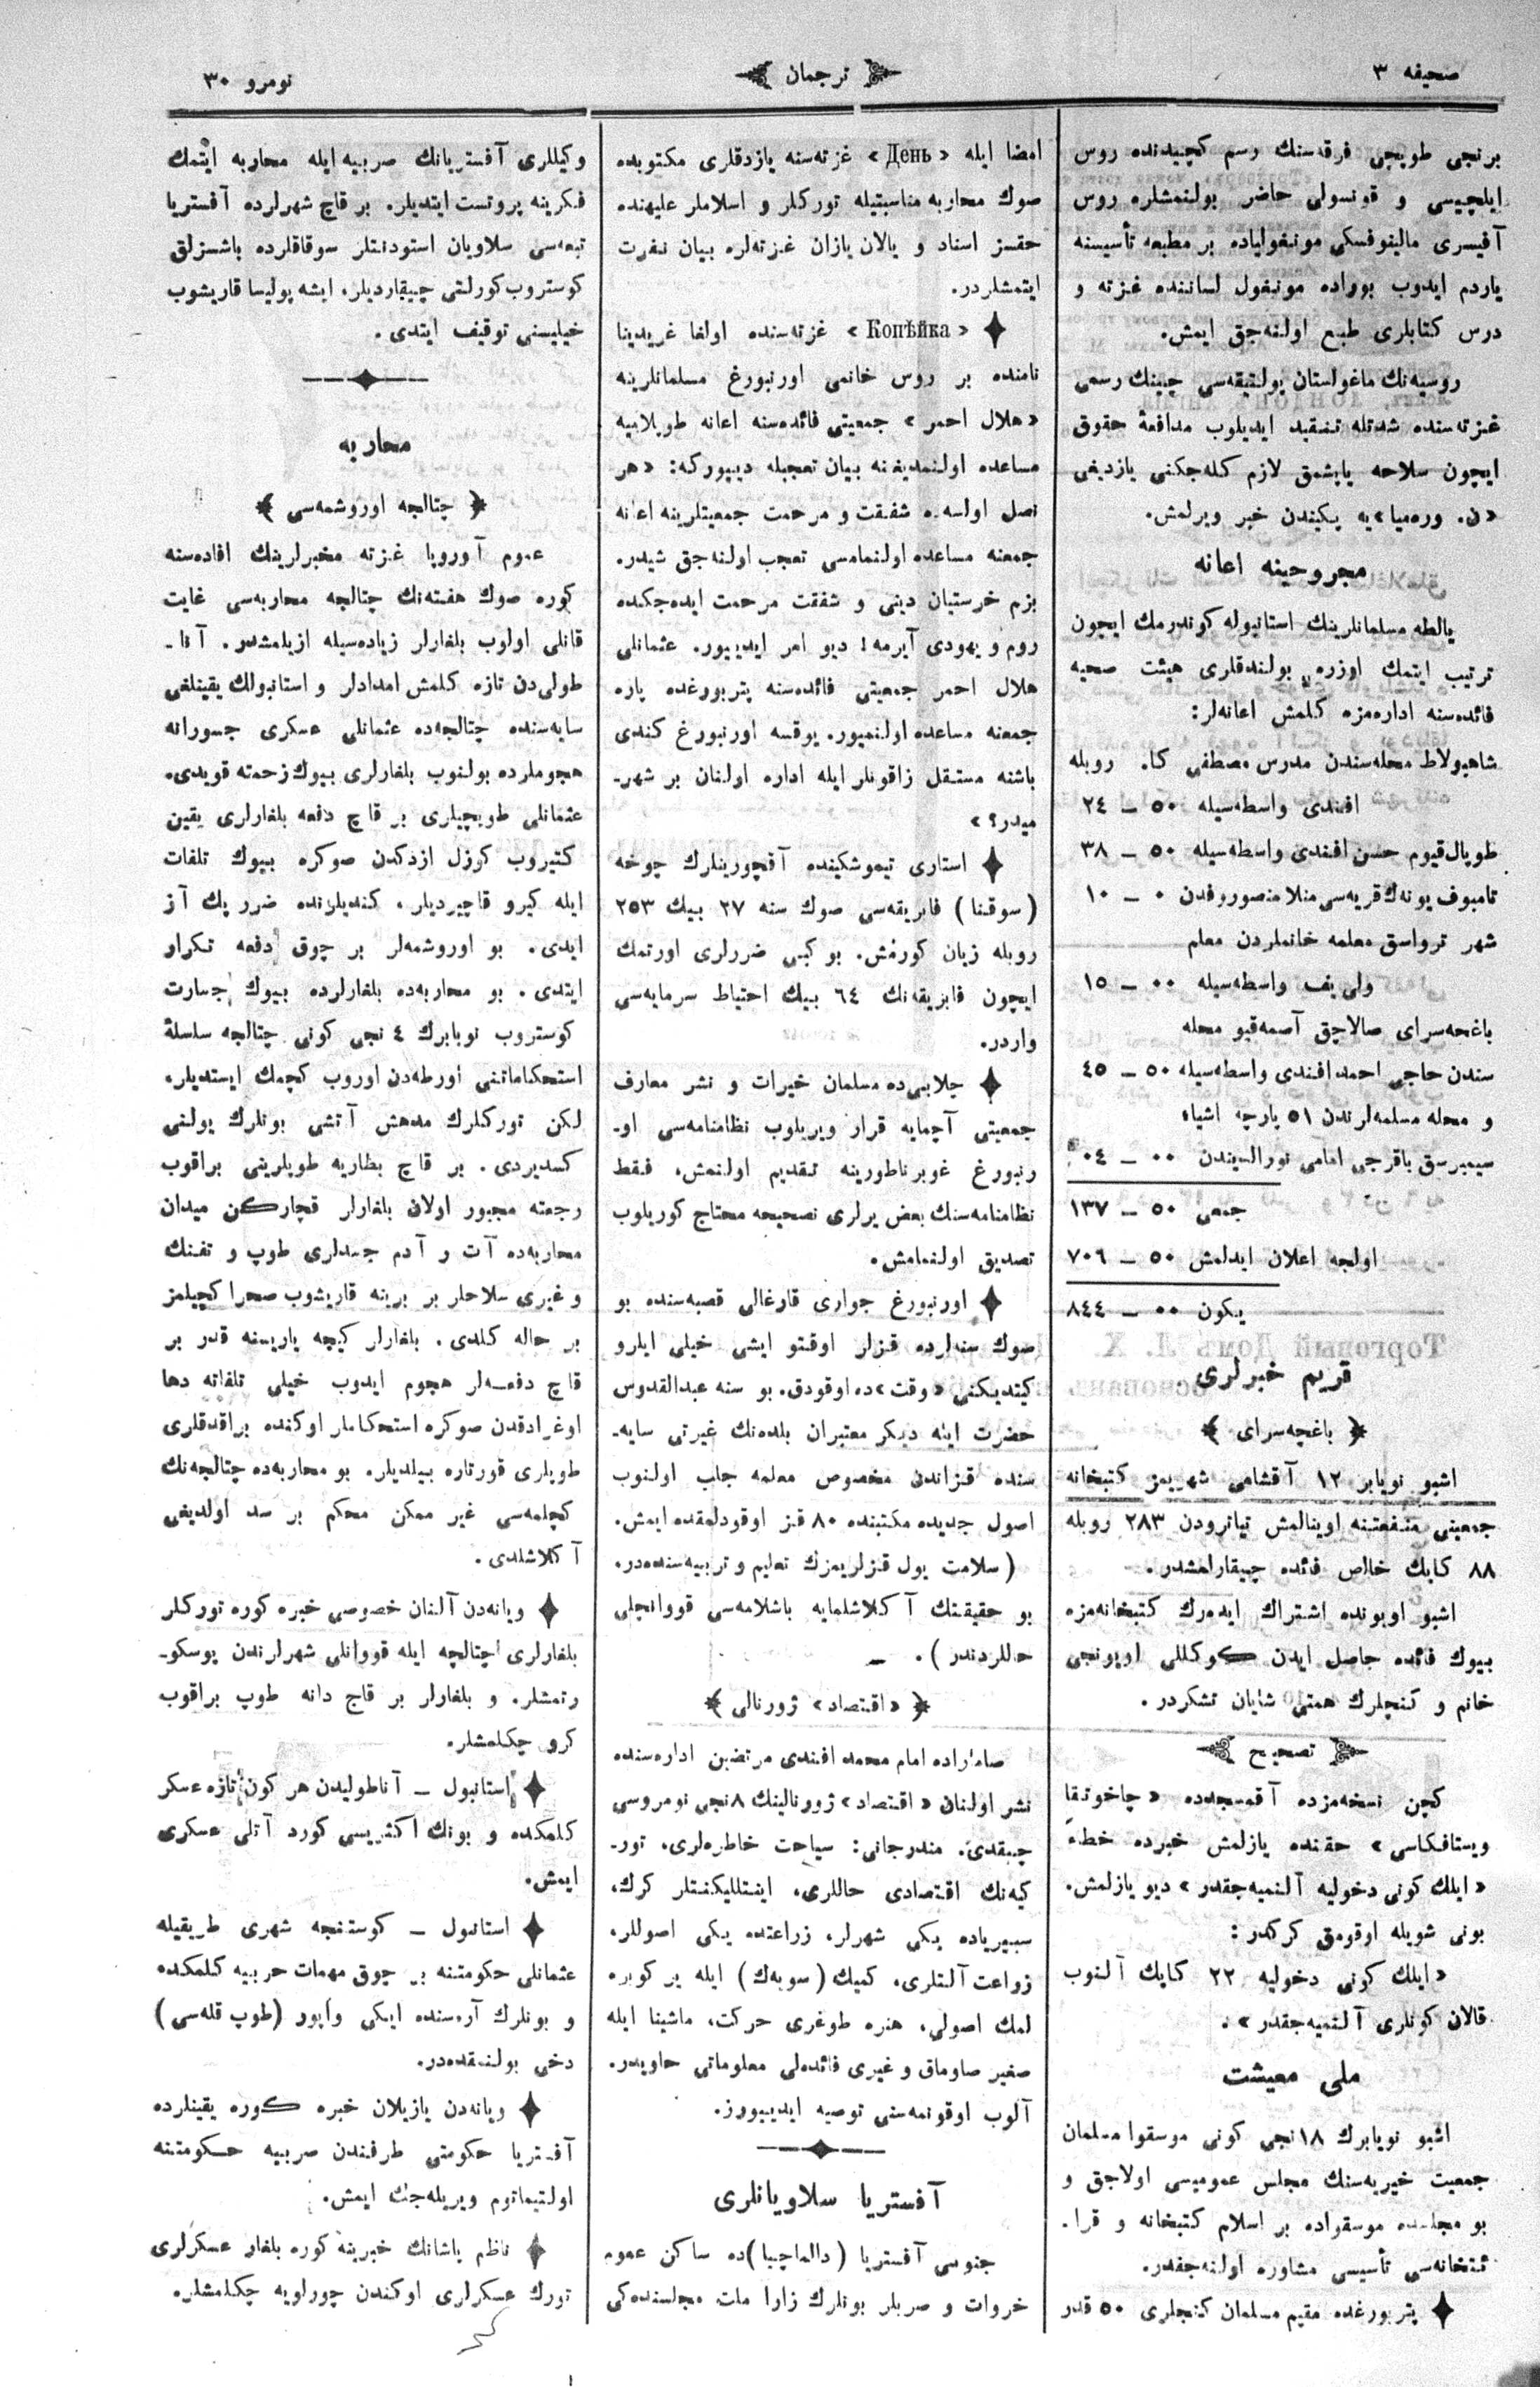 صحیفه ٣
ترجمان
نومرو ٣٠
برنجی طوپچی فرقه‌سنك رسم كچیدنده روس
ایلچیسی و قونسولی حاضر بولنمشلره روس
آفیسری مالینوفسكی مونغولیاده بر مطبعه تأسیسنه
یاردم ایدوب بوراده مونغول لساننده غزته و
درس كتابلری طبع اولنه‌جق ایمش.
روسیه‌نك ماغولستان پولتیقه‌سی چینك رسمی
غزته‌سنده شدتله تنقید ایدیلوب مدافعۀ حقوق
ایچون سلاحه یاپشمق لازم كله‌جكنی یازدیغی
«ن. وره‌میا»یه پكیندن خبر ویرلمش.
مجروحینه اعانه
یالطه مسلمانلرینك استانبوله كوندرمك ایچون
ترتیب ایتمك اوزره بولندقلری هیئت صحیه
فائده‌سنه اداره‌مزه كلمش اعانه‌لر:
شاهبولاط محله‌سندن مدرس مصطفی كا. روبله
افندی واسطه‌سیله ٥٠ ــ ٢٤
طوپال‌قیوم حسن افندی واسطه‌سیله ٥٠ ــ ٣٨
تامبوف یونه‌ك قریه‌سی منلا منصوروفدن ٠ ــ ١٠
شهر ترواسق معلمه خانملردن معلم
ولی یف واسطه‌سیله ٠٠ ــ ١٥
باغچه‌سرای صالاچق آصمه‌قپو محله
سندن حاجی احمد افندی واسطه‌سیله ٥٠ ــ ٤٥
و محله مسلمه‌لرندن ٥١ پارچه اشیاء
سیمبرسق باقرجی امامی نورالسیندن ٠٠ ــ ٠٤
جمعی ٥٠ ــ ١٣٧
اولجه اعلان ایدلمش ٥٠ ــ ٧٠٦
یكون ٠٠ ــ ٨٤٤
قریم خبرلری
﴿ باغچه‌سرای ﴾
اشبو نویابر ١٢ آقشامی شهریمز كتبخانه
جمعیتی منفعتنه اوینالمش تیاترودن ٢٨٣ روبله
٨٨ كاپك خالص فائده چیقارلمشدر.
اشبو اویونده اشتراك ایده‌رك كتبخانه‌مزه
بیوك فائده حاصل ایدن كوكللی اویونجی
خانم و كنجلرك همتی شایان تشكردر.
تصحیح
كچن نسخه‌مزده آقمسجده‌ده «چاخوتقا
ویستافكاسی» حقنده یازلمش خبرده خطاء
«ایلك كونی دخولیه آلنمیه‌جقدر» دیو یازلمش.
بونی شویله اوقومق كركدر:
«ایلك كونی دخولیه ٢٢ كاپك آلنوب
قالان كونلری آلنمیه‌جقدر».
ملی معیشت
اشبو نویابرك ١٨نجی كونی موسقوا مسلمان
جمعیت خیریه‌سنك مجلس عمومیسی اولاجق و
بو مجلسده موسقواده بر اسلام كتبخانه و قرا‌ـ
ئتخانه‌سی تأسیسی مشاوره اولنه‌جقدر.
✦ پتربورغده مقیم مسلمان كنجلری ٥٠ قدر
امضا ایله «День» غزته‌سنه یازدقلری مكتوبده
صوك محاربه مناسبتیله توركلر و اسلاملر علیهنده
حقسز اسناد و یالان یازان غزته‌لره بیان نفرت
ایتمشلردر.
✦ «Копѣйка» غزته‌سنده اولغا غریدینا
نامنده بر روس خانمی اورنبورغ مسلمانلرینه
«هلال احمر» جمعیتی فائده‌سنه اعانه طوپلامیه
مساعده اولنمدیغنه بیان تعجبله دیيوركه: «هر
نصل اولسه‌ده شفقت و مرحمت جمعیتلرینه اعانه
جمعنه مساعده اولنمامسی تعجب اولنه‌جق شیدر.
بزم خرستیان دینی و شفقت مرحمت ایده‌جكده
روم و یهودی آیرمه! دیو امر ایدییور. عثمانلی
هلال احمر جمعیتی فائده‌سنه پتربورغده پاره
جمعنه مساعده اولنمیور. یوقسه اورنبورغ كندی
باشنه مستقل زاقونلر ایله اداره اولنان بر شهر‌ـ
میدر؟»
✦ استاری تیموشكینده آقچورینلرك چوخه
(سوقنا) فابریقه‌سی صوك سنه ٢٧ بیك ٢٥٣
روبله زیان كورمش. بو كبی ضررلری اورتمك
ایچون فابریقه‌نك ٦٤ بیك احتیاط سرمایه‌سی
واردر.
✦ چلابی‌ده مسلمان خیرات و نشر معارف
جمعیتی آچمایه قرار ویریلوب نظامنامه‌سی او‌ـ
رنبورغ غوبرناطورینه تقدیم اولنمش، فقط
نظامنامه‌سنك بعض یرلری تصحیحه محتاج كوریلوب
تصدیق اولنمامش.
✦ اورنبورغ جواری قارغالی قصبه‌سنده بو
صوك سنه‌لرده قزلر اوقتو ایشی خیلی ایلرو
كیتدیكنی «وقت»ده اوقودق. بو سنه عبدالقدوس
حضرت ایله دیكر معتبران بلده‌نك غیرتی سایه‌ـ
سنده قزاندن مخصوص معلمه جلب اولنوب
اصول جدیده مكتبنده ٨٠ قز اوقودلمقده ایمش.
(سلامت یول قزلریمزك تعلیم و تربیه‌سنده‌در.
بو حقیقتك آكلاشلمایه باشلامه‌سی قووانچلی
حاللردندر).
﴿ «اقتصاد» ژورنالی ﴾
صاماراده امام محمد افندی مرتضین اداره‌سنده
نشر اولنان «اقتصاد» ژورنالینك ٨نجی نومروسی
چیقدی. مندرجاتی: سیاحت خاطره‌لری، تور‌ـ
كیه‌نك اقتصادی حاللری، اینتللیكنتلر كرك،
سبیریاده یكی شهرلر، زراعتده یكی اصوللر،
زراعت آلتلری، كمیك (سویه‌ك) ایله یر كوبره
لمك اصولی، هنره طوغری حركت، ماشینا ایله
صغیر صاوماق و غیری فائده‌لی معلوماتی حاویدر.
آلوب اوقونمه‌سنی توصیه ایدییورز.
آفستریا سلاویانلری
جنوبی آفستریا (دالماچیا)ده ساكن عموم
خروات و صربلر بونلرك زارا ملت مجلسنده‌كی
وكیللری آفستریانك صربیه ایله محاربه ایتمك
فكرینه پروتست ایتدیلر. بر قاچ شهرلرده آفستریا
تبعه‌سی سلاویان استودنتلر سوقاقلرده باشسزلق
كوستروب كورلتی چیقاردیلر، ایشه پولیسا قاریشوب
خیلیسنی توقیف ایتدی.
محاربه
﴿ چتالجه اوروشمه‌سی ﴾
عموم آوروپا غزته مخبرلرینك افاده‌سنه
كوره صوك هفته‌نك چتالجه محاربه‌سی غایت
قانلی اولوب بلغارلر زیاده‌سیله ازیلمشلر. آنا‌ـ
طولی‌دن تازه كلمش امدادلر و استانبولك یقینلغی
سایه‌سنده چتالجه‌ده عثمانلی عسكری جسورانه
هجوملرده بولنوب بلغارلری بیوك زحمته قویدی.
عثمانلی طوپچیلری بر قاچ دفعه بلغارلری یقین
كتیروب كوزل ازدكدن صوكره بیوك تلفات
ایله كیرو قاچیردیلر، كندیلرنده ضرر پك آز
ایدی. بو اوروشمه‌لر بر چوق دفعه تكرار
ایتدی. بو محاربه‌ده بلغارلرده بیوك جسارت
كوستروب نویابرك ٤ نجی كونی چتالجه سلسلۀ
استحكاماتنی اورطه‌دن اوروب كچمك ایستدیلر.
لكن توركلرك مدهش آتشی بونلرك یولنی
كسدیردی. بر قاچ بطاریه طوپلرینی براقوب
رجعته مجبور اولان بلغارلر قچاركن میدان
محاربه‌ده آت و آدم جسدلری طوپ و تفنك
و غیری سلاحلر بر برینه قاریشوب صحرا كچیلمز
بر حاله كلدی. بلغارلر كیچه یاریسنه قدر بر
قاچ دفعه‌لر هجوم ایدوب خیلی تلفاته دها
اوغرادقدن صوكره استحكاملر اوكنده براقدقلری
طوپلری قورتاره بیلدیلر. بو محاربه‌ده چتالجه‌نك
كچلمه‌سی غیر ممكن محكم بر سد اولدیغی
آكلاشلدی.
✦ ویانه‌دن آلنان خصوصی خبره كوره توركلر
بلغارلری چتالجه ایله قووانلی شهرلرندن پوسكو‌ـ
رتمشلر. و بلغارلر بر قاچ دانه طوپ براقوب
كرو چكلمشلر.
✦ استانبول ــ آناطولیدن هر كون تازه عسكر
كلمكده و بونك اكثریسی كورد آتلی عسكری
ایمش.
✦ استانبول ــ كوستنجه شهری طریقیله
عثمانلی حكومتنه بر چوق مهمات حربیه كلمكده
و بونلرك آره‌سنده ایكی واپور (طوپ قله‌سی)
دخی بولنمقده‌در.
✦ ویانه‌دن یازیلان خبره كوره یقینلرده
آفستریا حكومتی طرفندن صربیه حكومتنه
اولتیماتوم ویریله‌جك ایمش.
✦ ناظم پاشانك خبرینه كوره بلغار عسكرلری
تورك عسكرلری اوكندن چورلویه چكلمشلر.